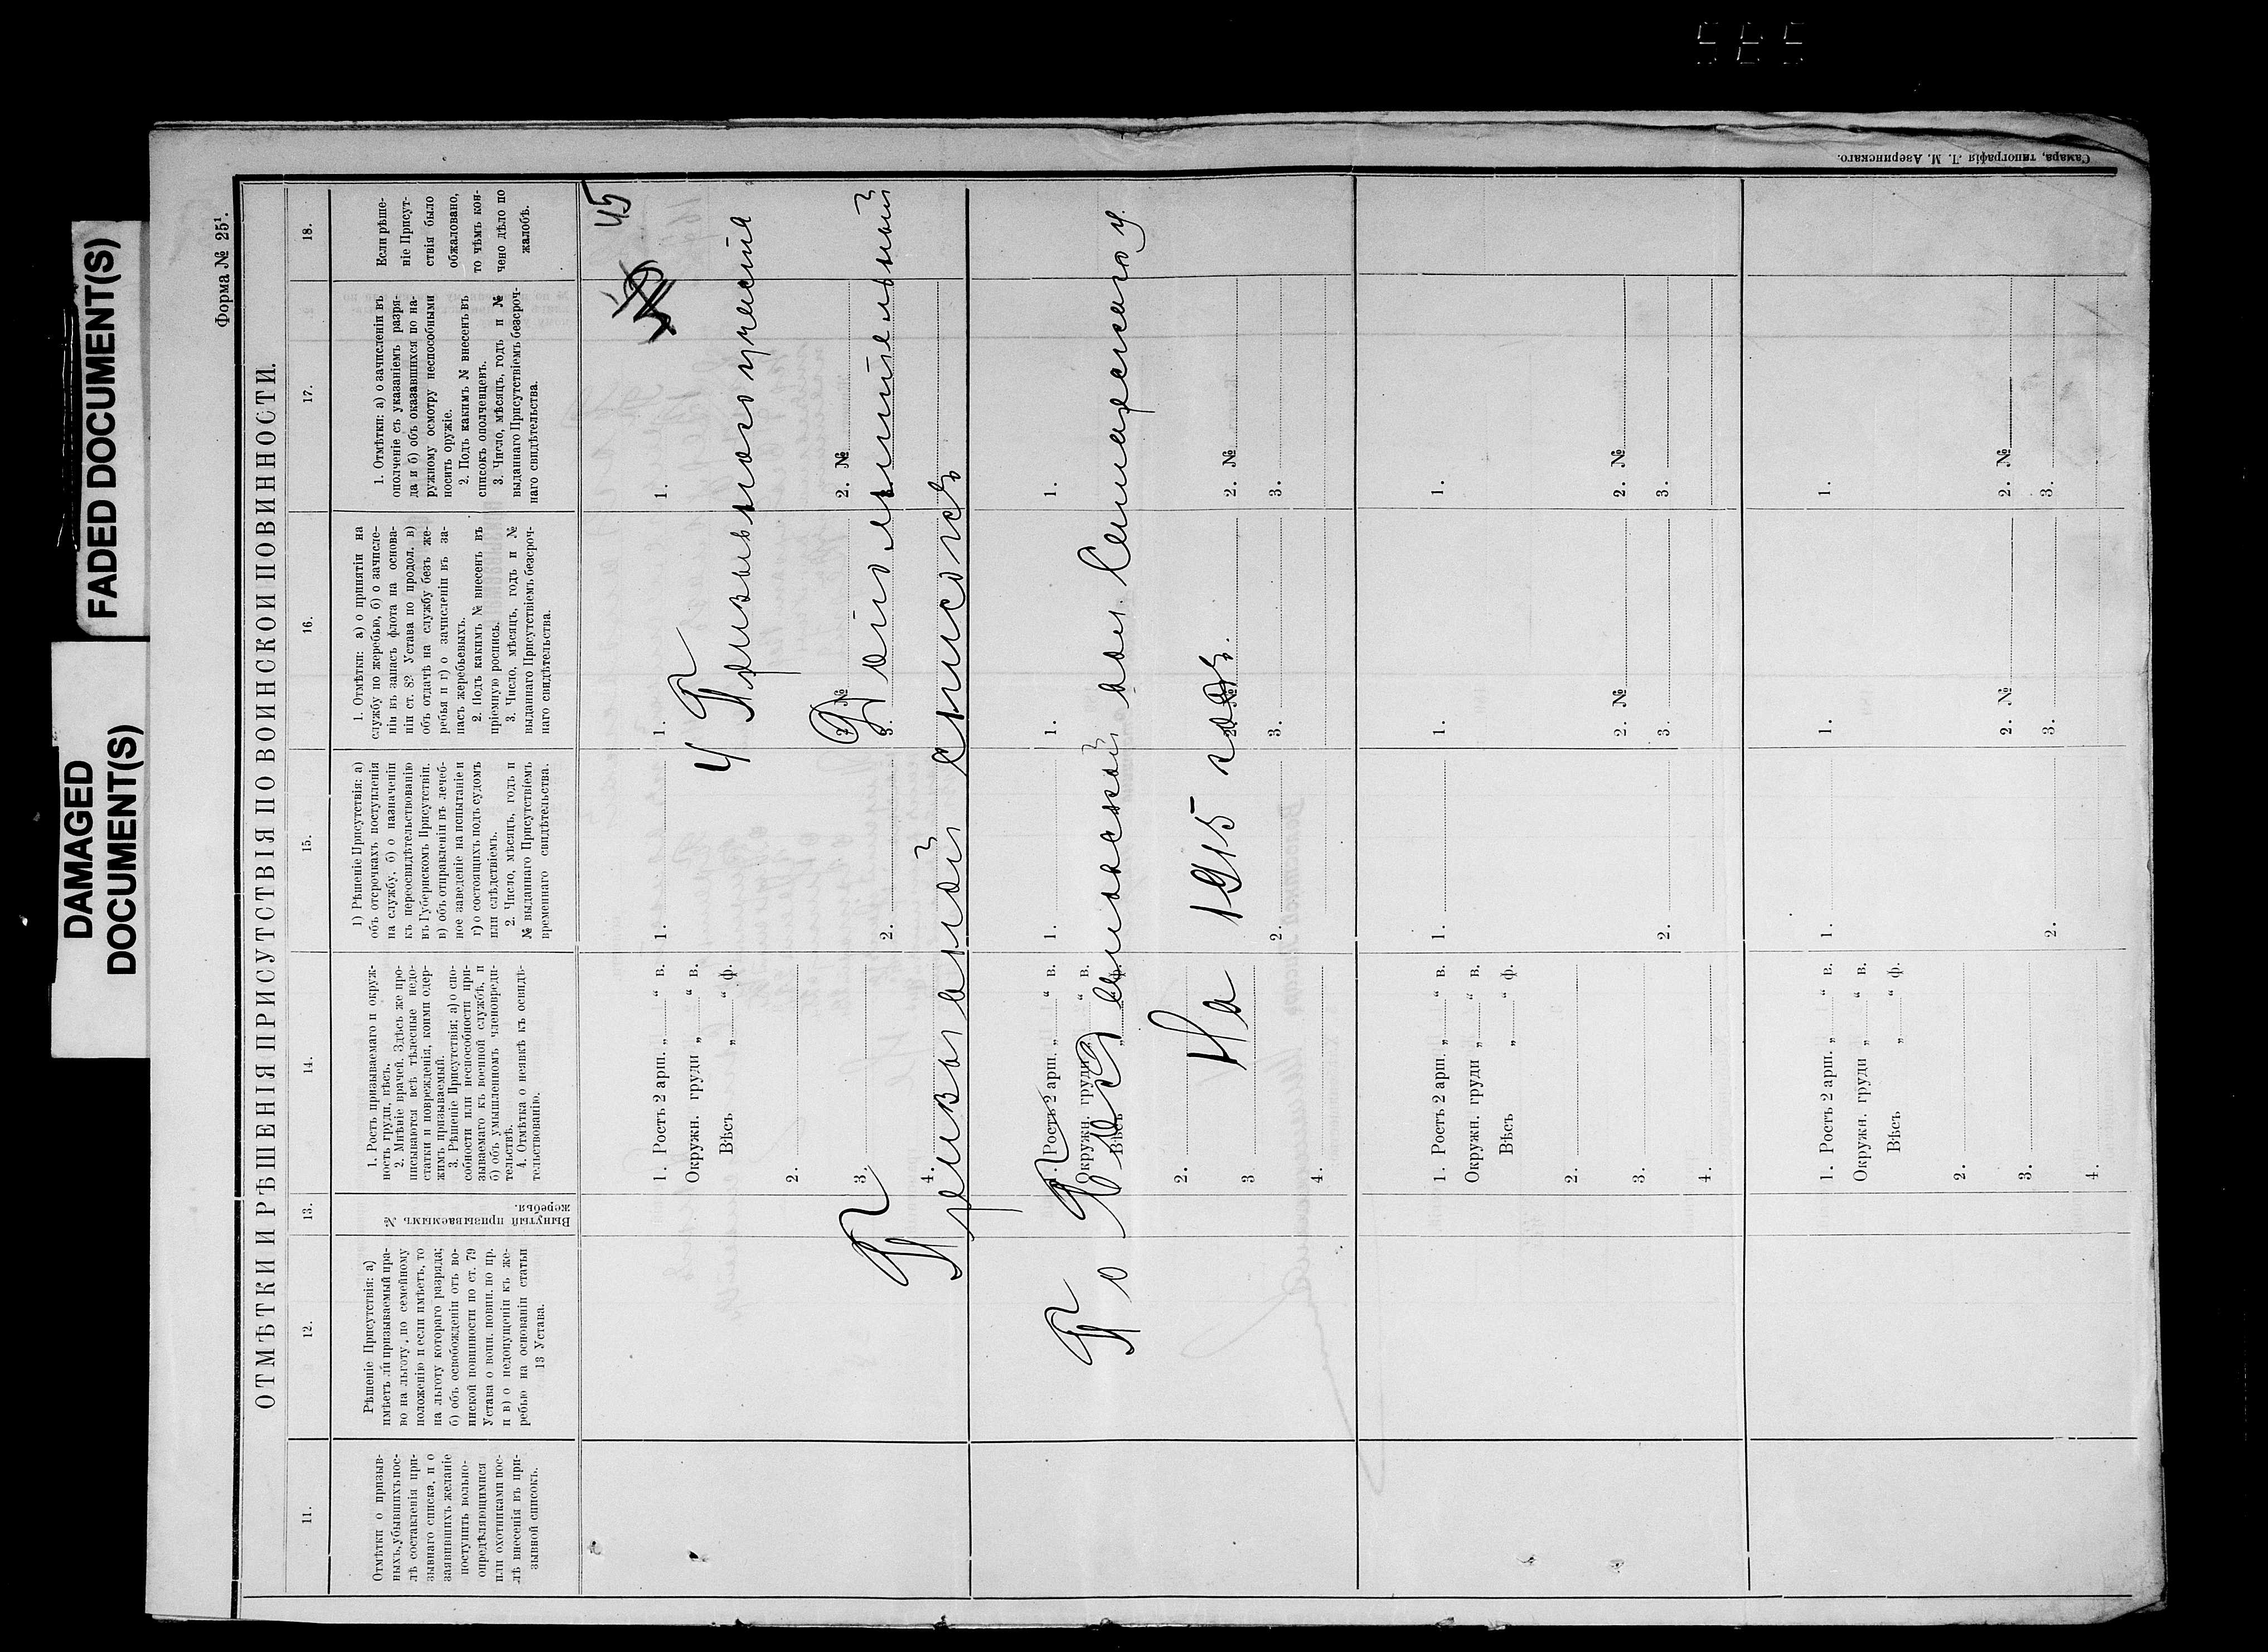 565
DAMAGED
DOCUMENT(S)
FADED DOCUMENT(S)
Форма № 25¹.
ОТМѢТКИ И РѢШЕНІЯ ПРИСУТСТВІЯ ПО ВОИНСКОЙ ПОВИННОСТИ.
11.
12.
13.
14.
15.
16.
17.
18.
Отмѣтки о призыв-
ныхъ, убывшихъ пос-
лѣ составленія при-
зывнаго списка, и о
заявившихъ желаніе
поступить вольно-
опредѣляющимися
или охотниками пос-
лѣ внесенія въ при-
зывной списокъ.
Рѣшеніе Присутствія: а)
имѣетъ ли призываемый пра-
во на льготу, по семейному
положенію и если имѣетъ, то
на льготу котораго разряда;
б) объ освобожденіи отъ во-
инской повинности по ст. 79
Устава о воин. повин. по пр.
и в) о недопущеніи къ же-
ребью на основаніи статьи
13 Устава.
Вынутый призываемымъ №
жеребья.
1. Ростъ призываемаго и окруж-
ность груди, вѣсъ.
2. Мнѣніе врачей. Здѣсь же про-
писываются всѣ тѣлесные недо-
статки и поврежденія, коими одер-
жимъ призываемый.
3. Рѣшеніе Присутствія; а) о спо-
собности или неспособности при-
зываемаго къ военной службѣ, и
б) объ умышленномъ членовреди-
тельствѣ.
4. Отмѣтка о неявкѣ къ освидѣ-
тельствованію.
1) Рѣшеніе Присутствія: а)
объ отсрочкахъ поступленія
на службу, б) о назначеніи
къ переосвидѣтельствованію
въ Губернскомъ Присутствіи.
в) объ отправленіи въ лечеб-
ное заведеніе на испытаніе и
г) о состоящихъ подъ судомъ
или слѣдствіемъ.
2. Число, мѣсяцъ, годъ и
№ выданнаго Присутствіемъ
временнаго свидѣтельства.
1. Отмѣтки: а) о принятіи на
службу по жеребью, б) о зачисле-
ніи въ запасъ флота на основа-
ніи ст. 82 Устава по продол. в)
объ отдачѣ на службу безъ же-
ребья и г) о зачисленіи въ за-
пасъ жеребьевыхъ.
2. Подъ какимъ № внесенъ въ
пріемную роспись.
3. Число, мѣсяцъ, годъ и №
выданнаго Присутствіемъ безсроч-
наго свидѣтельства.
1. Отмѣтки: а) о зачисленіи въ
ополченіе съ указаніемъ разря-
да и б) объ оказавшихся по на-
ружному осмотру неспособными
носить оружіе.
2. Подъ какимъ № внесенъ въ
списокъ ополченцевъ.
3. Число, мѣсяцъ, годъ и №
выданнаго Присутствіемъ безсроч-
наго свидѣтельства.
Если рѣше-
ніе Присут-
ствія было
обжаловано,
то чѣмъ кон-
чено дѣло по
жалобѣ.
45
4 Призывного участка
Дополнительный
Призывной списокъ
вол. Самарскаго у.
На 1915 годъ.
1. Ростъ 2 арш. „ “ в.
Окружн. груди „ “ в.
Вѣсъ „ “ ф.
2.
3.
4.
1.
2.
1.
2. №
3.
1.
2. №
3.
1. Ростъ 2 арш. „ “ в.
Окружн. груди „ “ в.
Вѣсъ „ “ ф.
2.
3
4.
1.
2.
1.
2. №
3.
1.
2. №
3.
1. Ростъ 2 арш. „ “ в.
Окружн. груди „ “ в.
Вѣсъ „ “ ф.
2.
3.
4.
1.
2.
1.
2. №
3.
1.
2. №
3.
1. Ростъ 2 арш. „ “ в.
Окружн. груди „ “ в.
Вѣсъ „ “ ф.
2.
3.
4.
1.
2.
1.
2. №
3.
1.
2. №
3.
Самара, типографія Л. М. Азеринскаго.